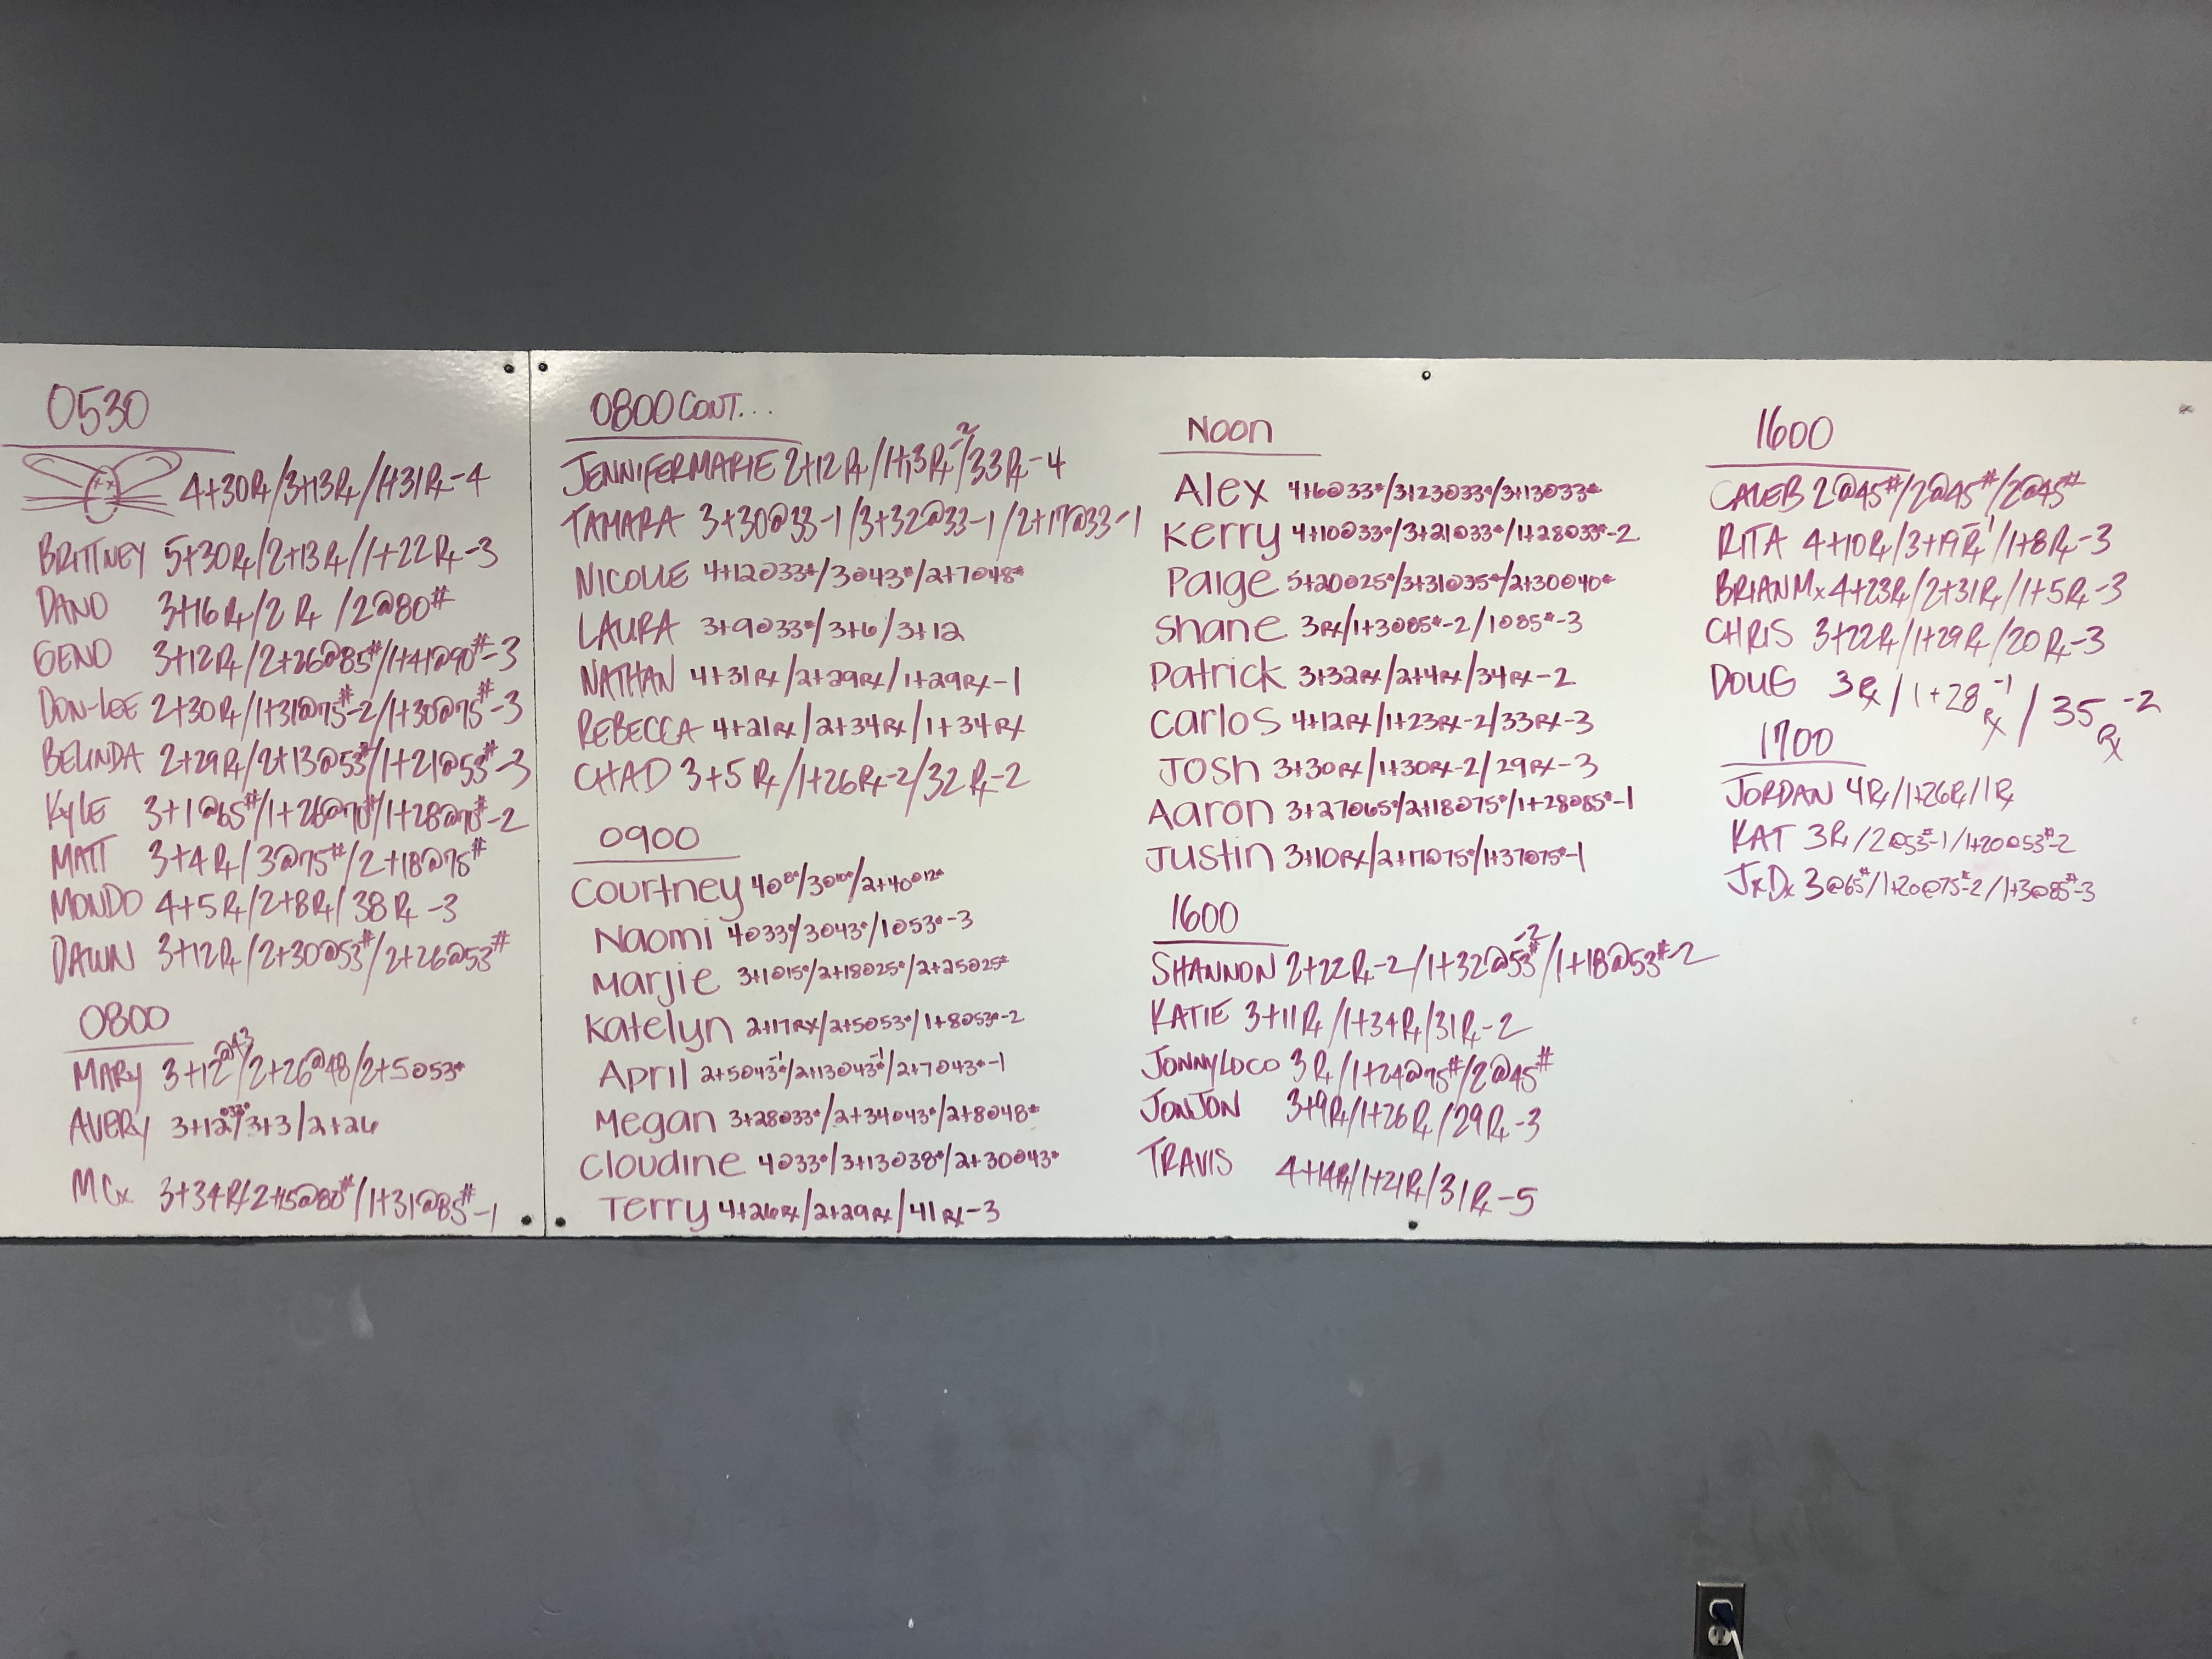 0530
4+30Rx/3+13Rx/1+31Rx-4
BRITTNEY 5+30Rx/2+13Rx/1+22Rx-3
DANO 3+16Rx/2Rx/2@80#
GENO 3+12Rx/2+26@85#/1+41@90#-3
DON-LEE 2+30Rx/1+31@75#-2/1+30@75#-3
BELINDA 2+29Rx/2+13@53#/1+21@53#-3
KYLE 3+1@65#/1+26@70#/1+28@70#-2
MATT 3+4Rx/3@75#/2+18@75#
MONDO 4+5Rx/2+8Rx/38Rx-3
DAWN 3+12Rx/2+30@53#/2+26@53#
0800
MARY 3+12@43/2+26@48/2+5@53#
AVERY 3+12@33#/3+3/2+26
MCx 3+34Rx/2+15@80#/1+31@85#-1
0800 CONT...
JENNIFERMARIE 2+12Rx/1+13Rx-2/33Rx-4
TAMARA 3+30@33-1/3+32@33-1/2+17@33-1
NICOLLE 4+12@33#/3@43#/2+7@48#
LAURA 3+9@33#/3+6/3+12
NATHAN 4+31Rx/2+29Rx/1+29Rx-1
REBECCA 4+21Rx/2+34Rx/1+34Rx
CHAD 3+5Rx/1+26Rx-2/32Rx-2
0900
Courtney 4@8#/3@10#/2+40@12#
Naomi 4@33#/3@43#/1@53#-3
Marjie 3+1@15#/2+18@25#/2+25@25#
Katelyn 2+17Rx/2+5@53#/1+8@53#-2
April 2+5@43#-1/2+13@43#-1/2+7@43#-1
Megan 3+28@33#/2+34@43#/2+8@48#
Cloudine 4@33#/3+13@38#/2+30@43#
Terry 4+26Rx/2+29Rx/41Rx-3
Noon
Alex 4+6@33#/3+23@33#/3+13@33#
Kerry 4+10@33#/3+21@33#/1+28@33#-2
Paige 5+20@25#/3+31@35#/2+30@40#
Shane 3Rx/1+30@85#-2/10@85#-3
Patrick 3+32Rx/2+4Rx/34Rx-2
Carlos 4+12Rx/1+23Rx-2/33Rx-3
Josh 3+30Rx/1+30Rx-2/29Rx-3
Aaron 3+27@65#/2+18@75#/1+28@85#-1
Justin 3+10Rx/2+17@75#/1+37@75#-1
1600
SHANNON 2+22Rx-2/1+32@53#-2/1+18@53#-2
KATIE 3+11Rx/1+34Rx/31Rx-2
JONNYLOCO 3Rx/1+24@75#/2@45#
JONJON 3+9Rx/1+26Rx/29Rx-3
TRAVIS 4+14Rx/1+21Rx/31Rx-5
1600
CALEB 2@45#/2@45#/2@45#
RITA 4+10Rx/3+19Rx-1/1+8Rx-3
BRIANMx 4+23Rx/2+31Rx/1+5Rx-3
CHRIS 3+22Rx/1+29Rx/20Rx-3
DOUG 3Rx/1+28Rx-1/35Rx-2
1700
JORDAN 4Rx/1+26Rx/1Rx
KAT 3Rx/2@53#-1/1+20@53#-2
JxDx 3@65#/1+20@75#-2/1+3@85#-3